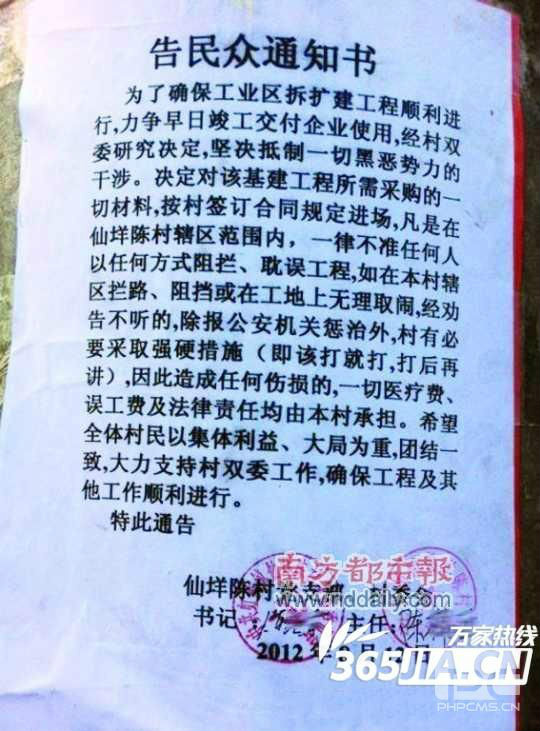 告民众通知书
为了确保工业区拆扩建工程顺利进
行,力争早日竣工交付企业使用,经村双
委研究决定,坚决抵制一切黑恶势力的
干涉。决定对该基建工程所需采购的一
切材料,按村签订合同规定进场,凡是在
仙垟陈村辖区范围内,一律不准任何人
以任何方式阻拦、耽误工程,如在本村辖
区拦路、阻挡或在工地上无理取闹,经劝
告不听的,除报公安机关惩治外,村有必
要采取强硬措施(即该打就打,打后再
讲),因此造成任何伤损的,一切医疗费、
误工费及法律责任均由本村承担。希望
全体村民以集体利益、大局为重,团结一
致,大力支持村双委工作,确保工程及其
他工作顺利进行。
特此通告
南方都市报
仙垟陈村
www.nddaily.com
书记 主任:陈
万家热线
2012年9月12日
365JIA.CN
PHPCMS.CN